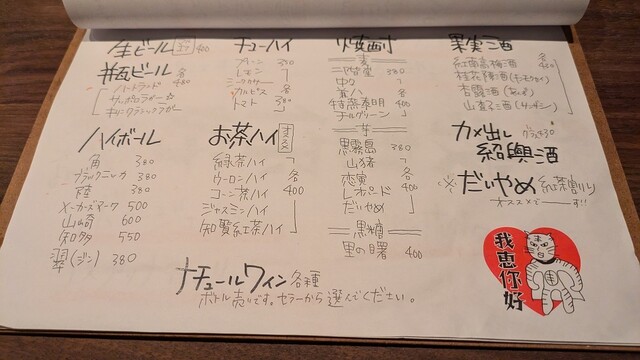 生ビール 400
瓶ビール 各480
ハートランド
サッポロラガー
キリンクラシックラガー
ハイボール
角 380
ブラックニッカ 380
陸 380
メーカーズマーク 500
山崎 600
知多 550
翠(ジン) 380
チューハイ
プレーン 350
レモン
カルピス 各
トマト 380
お茶ハイ オススメ
緑茶ハイ
ウーロンハイ 各
コーン茶ハイ 400
ジャスミンハイ
知覧紅茶ハイ
焼酎
麦
二階堂 380
中々
兼八 各
特蒸泰明 400
チルグリーン
芋
黒霧島 380
山猪
恋実 各
レオパード 400
だいやめ
黒糖
里の曙 400
果実酒
紅南高梅酒 各
桂花陳酒(キンモクセイ) 450
杏露酒(あんず)
山査子酒(サンザシ)
カメ出し
紹興酒
※だいやめ 紅茶割り
オススメでーす!!
ナチュールワイン 各種
ボトル売りです。セラーから選んでください。
我恵你好